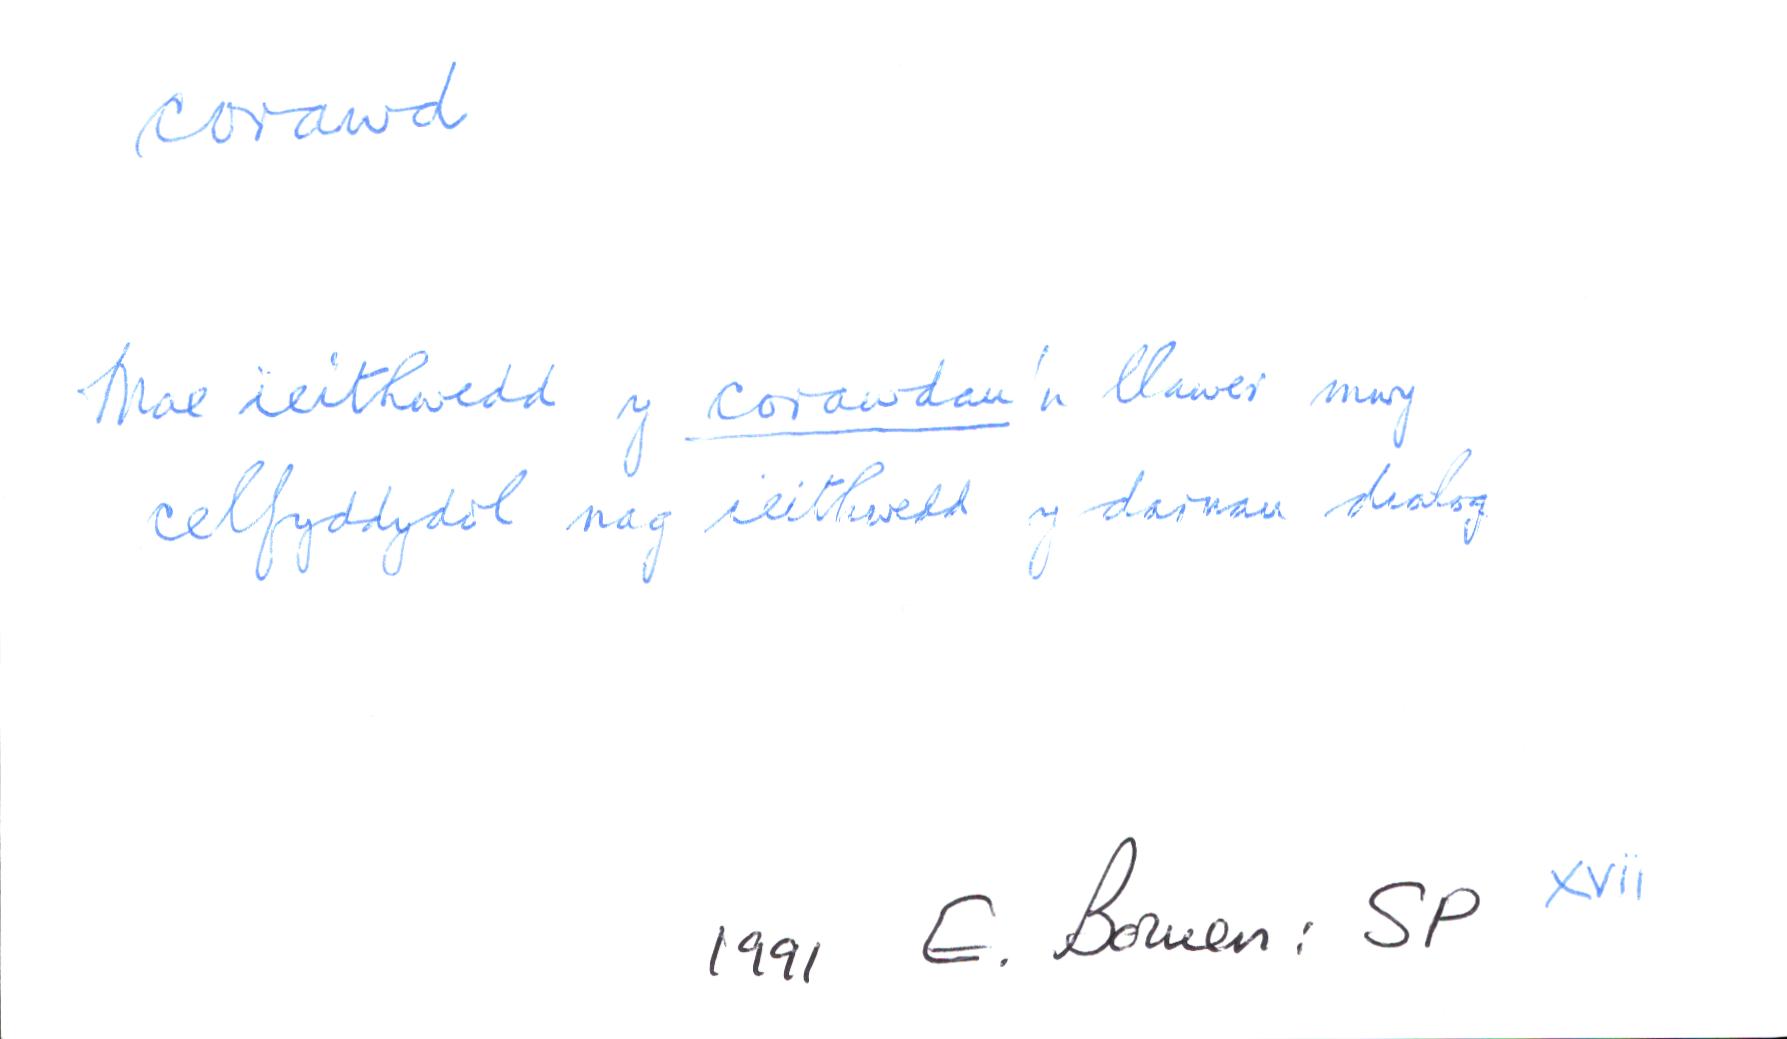 corawd
Mae ieithwedd y corawdau'n llawer mwy
celfyddydol nag ieithwedd y darnau dialog
1991 E. Bowen: SP xvii